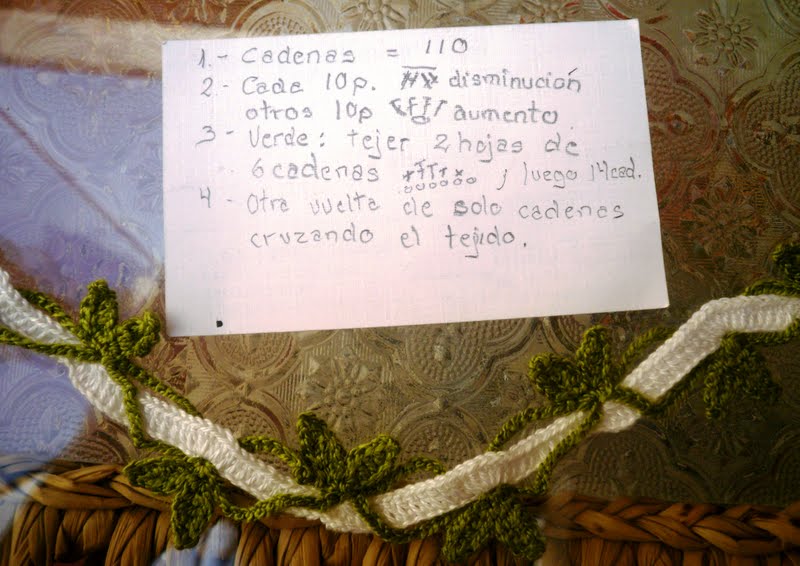 1.- Cadenas = 110
2- Cada 10p. disminución
otros 10p aumento
3- Verde: tejer 2 hojas de
6 cadenas ; luego 14 cad.
4- Otra vuelta de solo cadenas
cruzando el tejido.